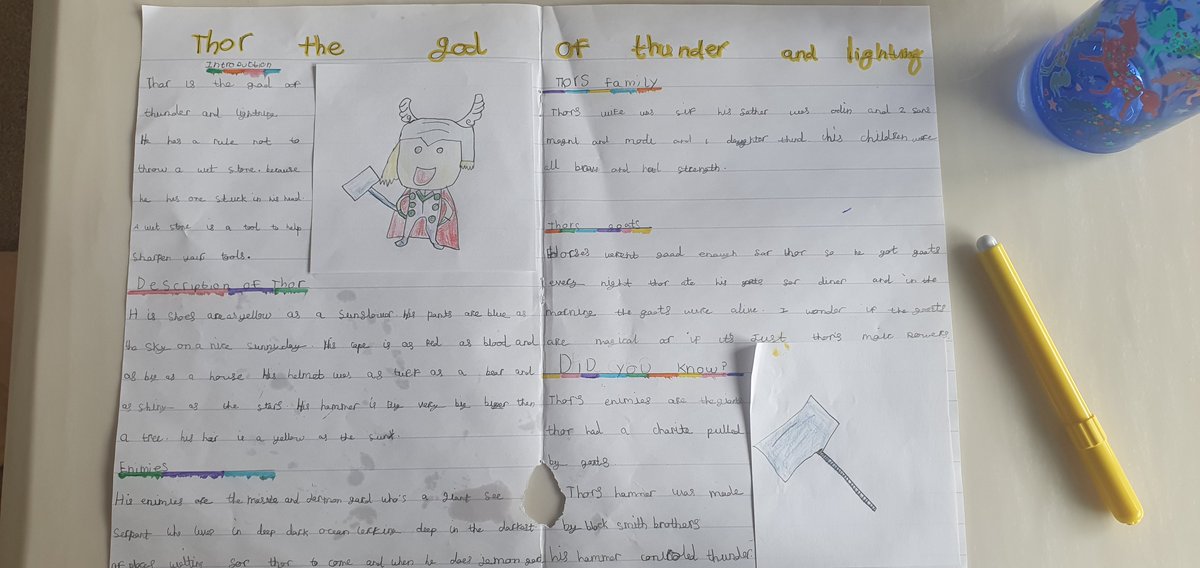 Thor the god of thunder and lighting
Introduction
Thor is the god of
thunder and lightning.
He has a rule not to
throw a wet stone. because
he has one stuck in his head.
A wet stone is a tool to help
sharpen your tools.
Description of Thor
His shoes are as yellow as a sunslower his pants are blue as
the sky on a nice sunny day. His cape is as red as blood and
as big as a house. His helmet was as tuff as a bear and
as shiny as the stars. His hammer is big very big bigger then
a tree. his hair is a yellow as the sun.
Enimies
His enimies are the and who's a giant see
serpant who lives in deep dark ocean deep in the darkest
of places waiting for thor to come and when he does
Thors family
Thors wife was sif his father was odin and 2 sons
magni and modi and 1 daughter thrud this children were
all brave and had strength.
Thors goats
Horses werent good enough for thor so he got goats
every night thor ate his goats for diner and in the
morning the goats were alive. I wonder if the goats
are magical or if it's just thors magic powers
DiD you know?
Thors enimies are the giants
thor had a pulled
by goats.
Thors hammer was made
by black smith brothers
his hammer controled thunder